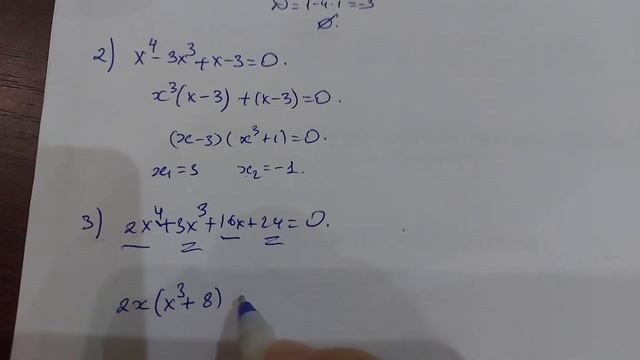 D = 1 - 4·1 = -3
∅.
2) x⁴ - 3x³ + x - 3 = 0.
x³(x - 3) + (x - 3) = 0.
(x - 3)(x³ + 1) = 0.
x₁ = 3 x₂ = -1.
3) 2x⁴ + 3x³ + 16x + 24 = 0.
2x(x³ + 8)